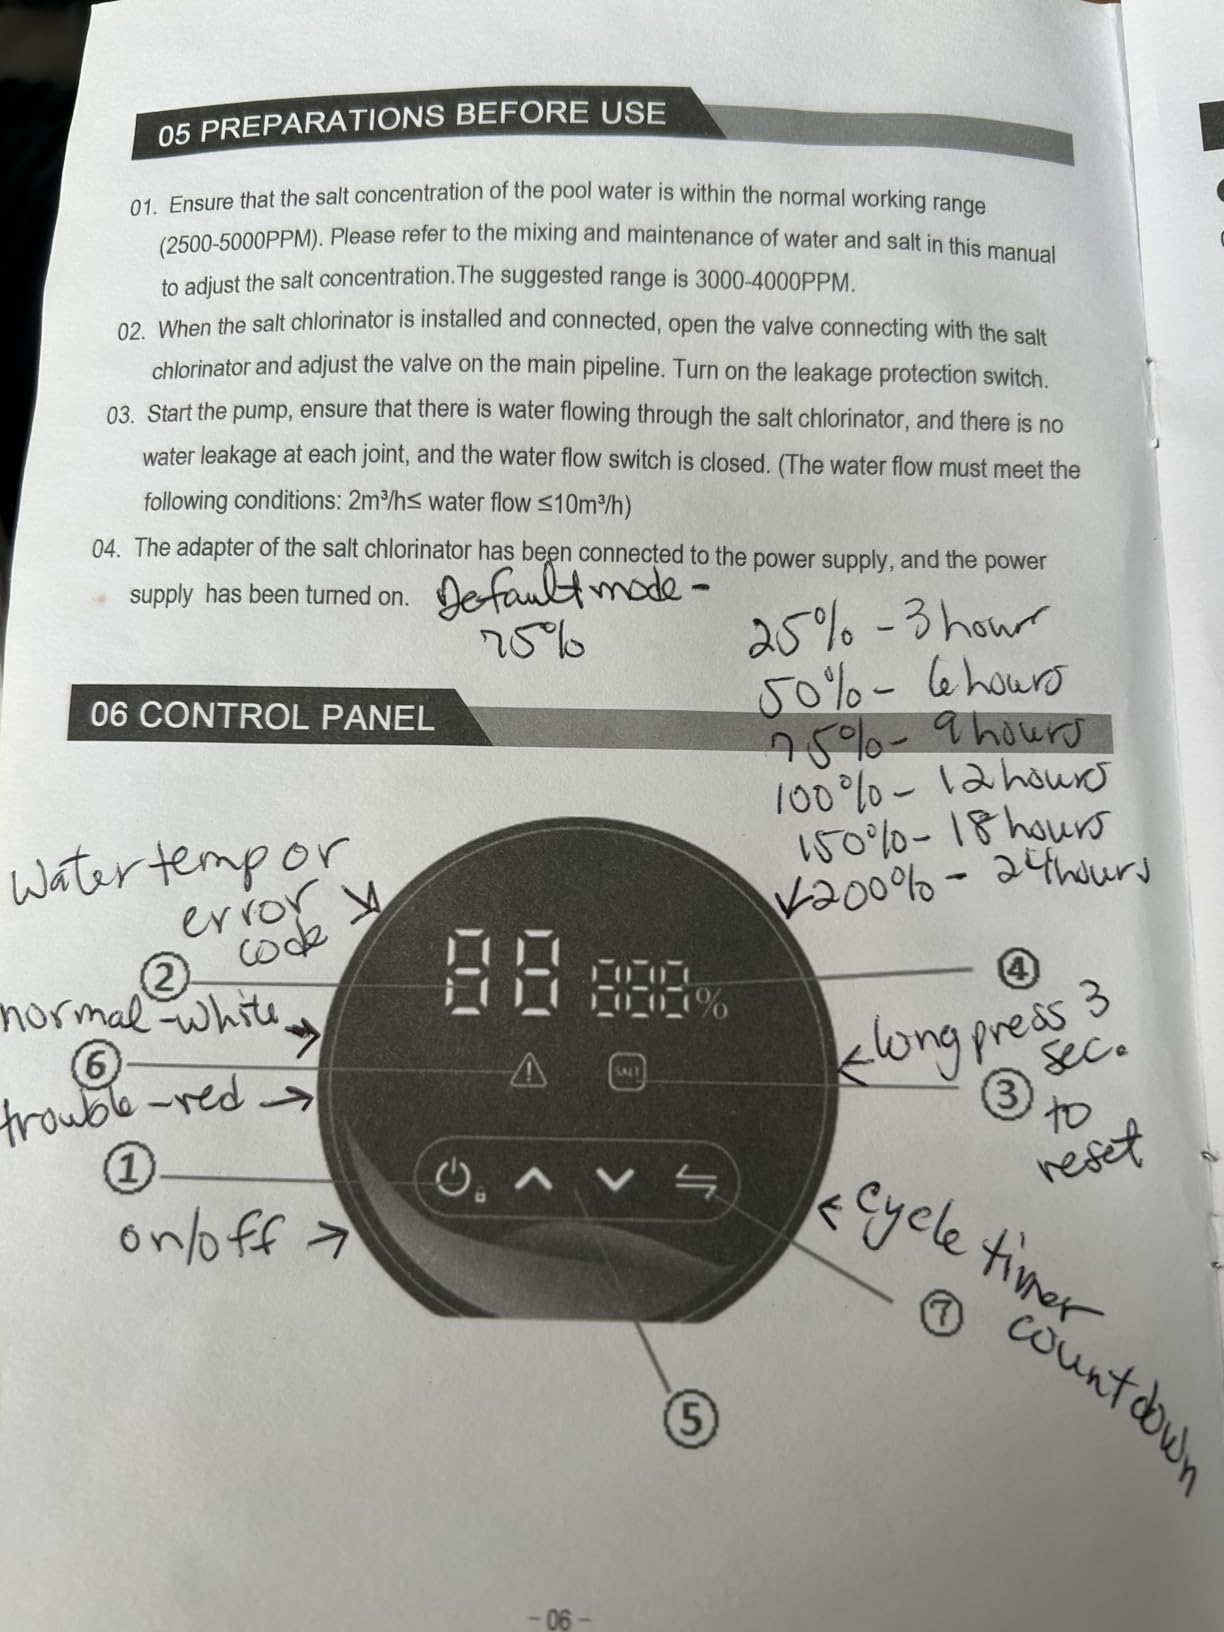 05 PREPARATIONS BEFORE USE
01. Ensure that the salt concentration of the pool water is within the normal working range
(2500-5000PPM). Please refer to the mixing and maintenance of water and salt in this manual
to adjust the salt concentration.The suggested range is 3000-4000PPM.
02. When the salt chlorinator is installed and connected, open the valve connecting with the salt
chlorinator and adjust the valve on the main pipeline. Turn on the leakage protection switch.
03. Start the pump, ensure that there is water flowing through the salt chlorinator, and there is no
water leakage at each joint, and the water flow switch is closed. (The water flow must meet the
following conditions: 2m³/h≤ water flow ≤10m³/h)
04. The adapter of the salt chlorinator has been connected to the power supply, and the power
supply has been turned on.
Default mode -
75%
25% - 3 hour
50% - 6 hours
75% - 9 hours
100% - 12 hours
150% - 18 hours
200% - 24 hours
06 CONTROL PANEL
Water temp or
error
code
②
88 888%
④
normal - white
⑥
SALT
long press 3
sec.
③
to
reset
trouble - red
①
on/off
cycle timer
countdown
⑦
⑤
- 06 -